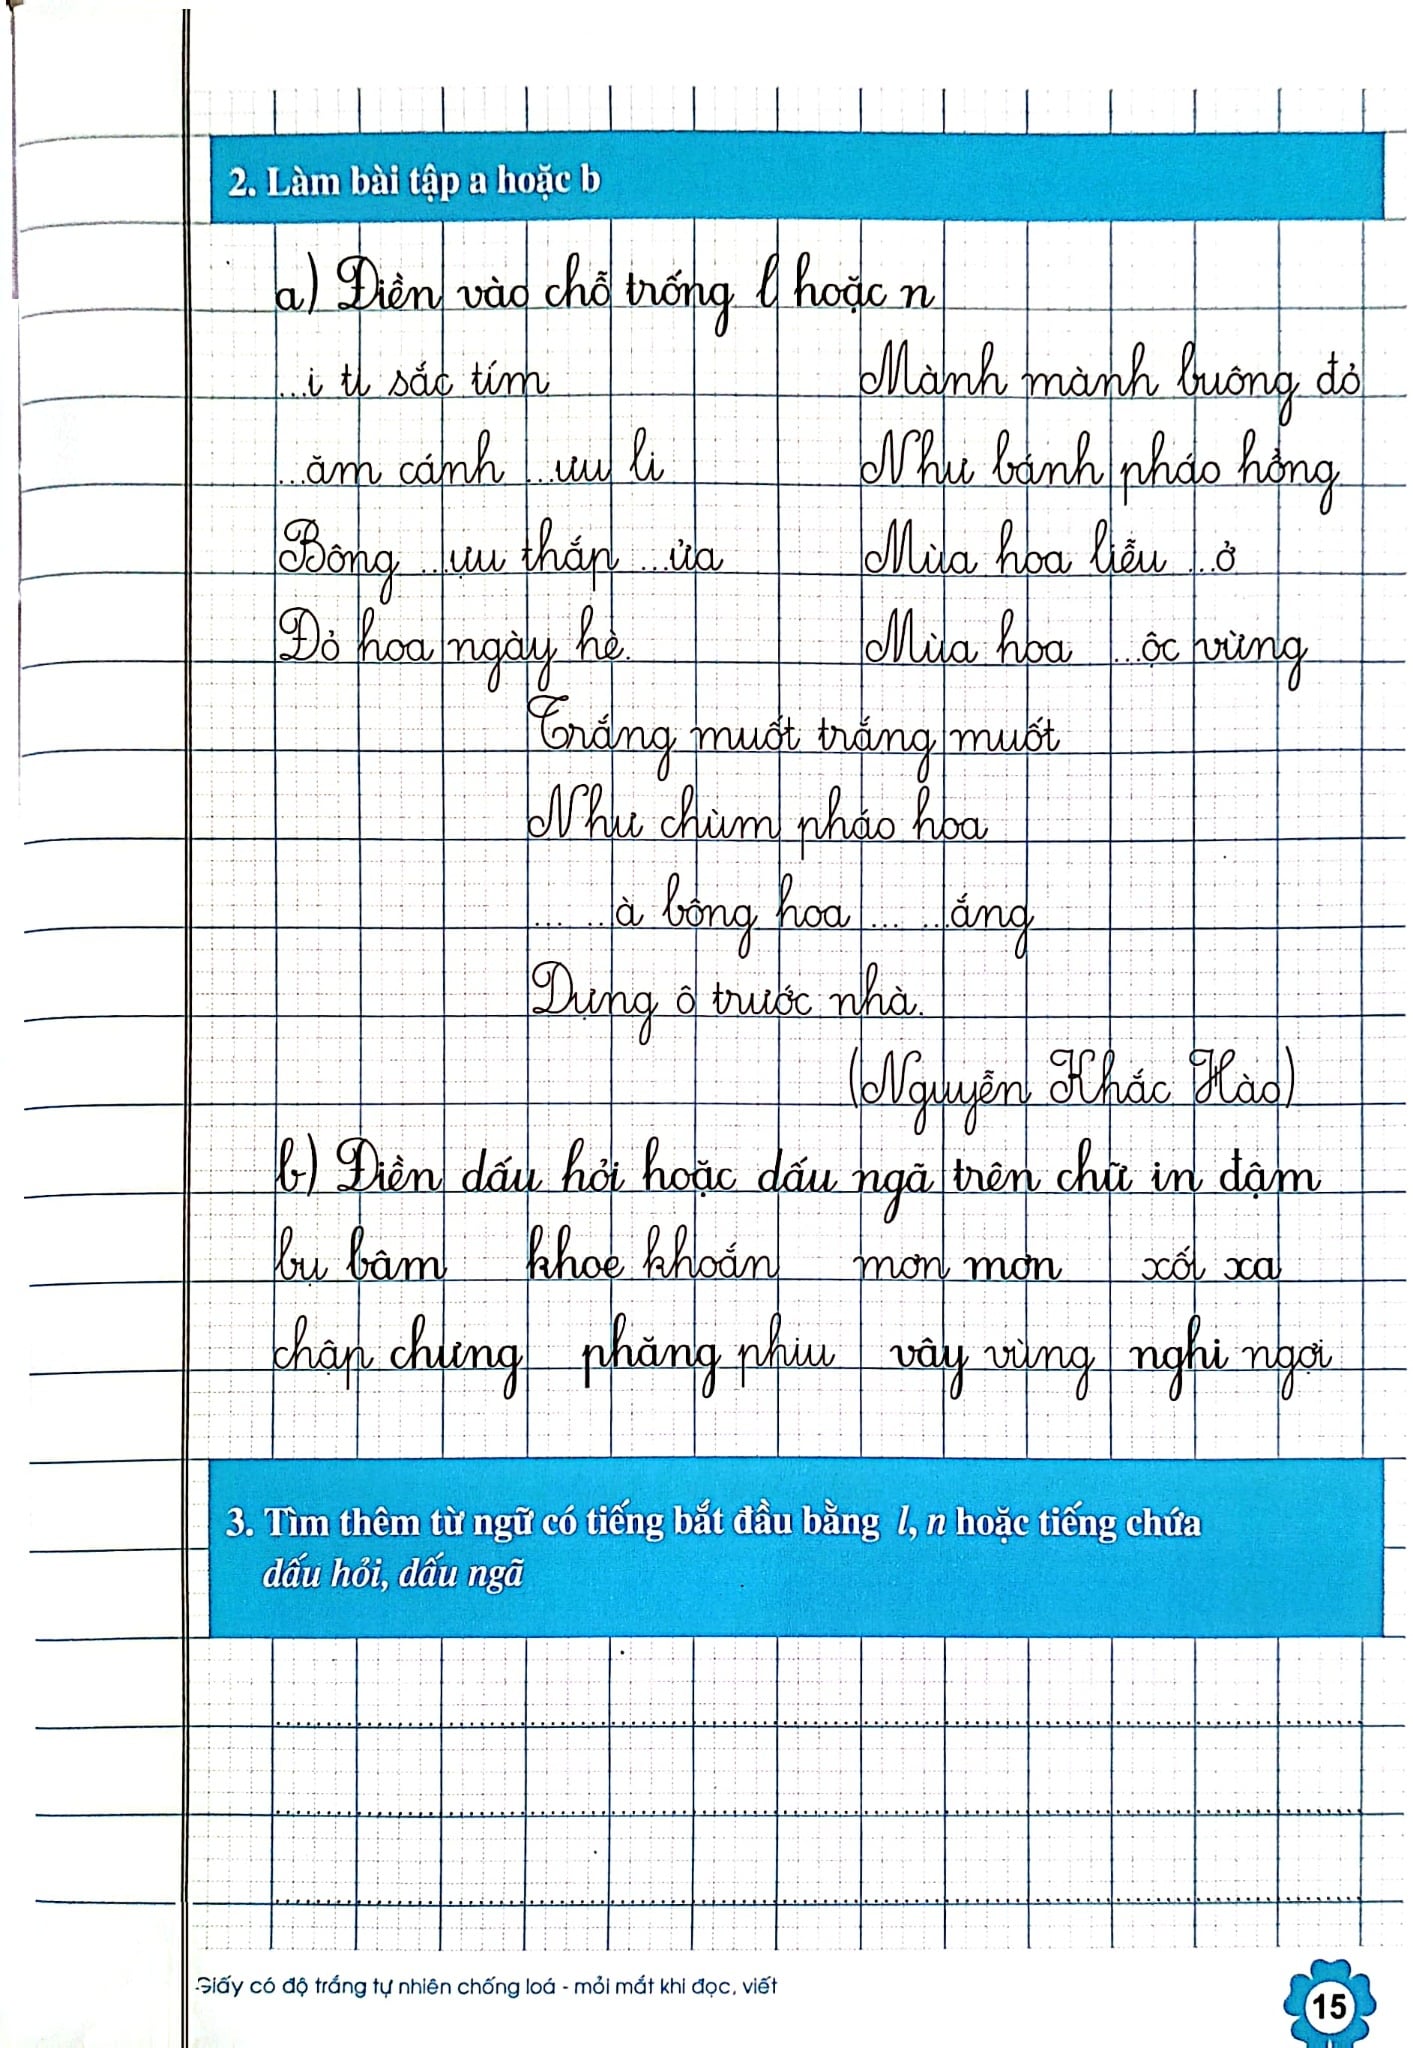 2. Làm bài tập a hoặc b
a) Điền vào chỗ trống l hoặc n
...i ti sắc tím
...ăm cánh ...ưu li
Bông ...ựu thắp ...ửa
Đỏ hoa ngày hè.
Mành mành buông đỏ
Như bánh pháo hồng
Mùa hoa liễu ...ở
Mùa hoa ...ộc vừng
Trắng muốt trắng muốt
Như chùm pháo hoa
... ...à bông hoa ... ...ắng
Dựng ô trước nhà.
(Nguyễn Khắc Hào)
b) Điền dấu hỏi hoặc dấu ngã trên chữ in đậm
bụ bâm khoe khoắn mơn mơn xối xa
chập chưng phăng phiu vây vùng nghi ngợi
3. Tìm thêm từ ngữ có tiếng bắt đầu bằng l, n hoặc tiếng chứa
dấu hỏi, dấu ngã
Giấy có độ trắng tự nhiên chống loá - mỏi mắt khi đọc, viết
15